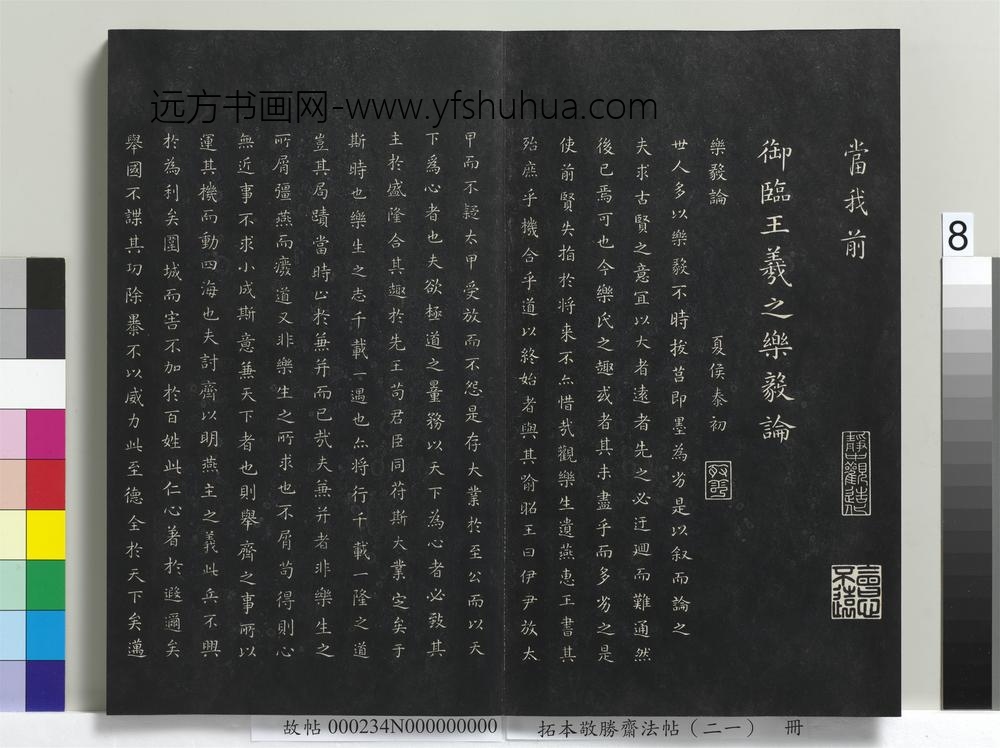 远方书画网-www.yfshuhua.com
當我前
靜中觀造化
意足不求顏色似
御臨王羲之樂毅論
樂毅論 夏侯泰初
世人多以樂毅不時拔莒即墨為劣是以叙而論之
夫求古賢之意宜以大者遠者先之必迂迴而難通然
後已焉可也今樂氏之趣或者其未盡乎而多劣之是
使前賢失指於将来不亦惜哉觀樂生遺燕惠王書其
殆庶乎機合乎道以終始者與其喻昭王曰伊尹放太
甲而不疑太甲受放而不怨是存大業於至公而以天
下為心者也夫欲極道之量務以天下為心者必致其
主於盛隆合其趣於先王苟君臣同符斯大業定矣于
斯時也樂生之志千載一遇也亦将行千載一隆之道
豈其局蹟當時止於兼并而已哉夫兼并者非樂生之
所屑彊燕而廢道又非樂生之所求也不屑苟得則心
無近事不求小成斯意兼天下者也則舉齊之事所以
運其機而動四海也夫討齊以明燕主之義此兵不興
於為利矣圍城而害不加於百姓此仁心著於遐邇矣
舉國不謀其功除暴不以威力此至德全於天下矣邁
8
故帖 000234N000000000 拓本敬勝齋法帖（二一） 冊